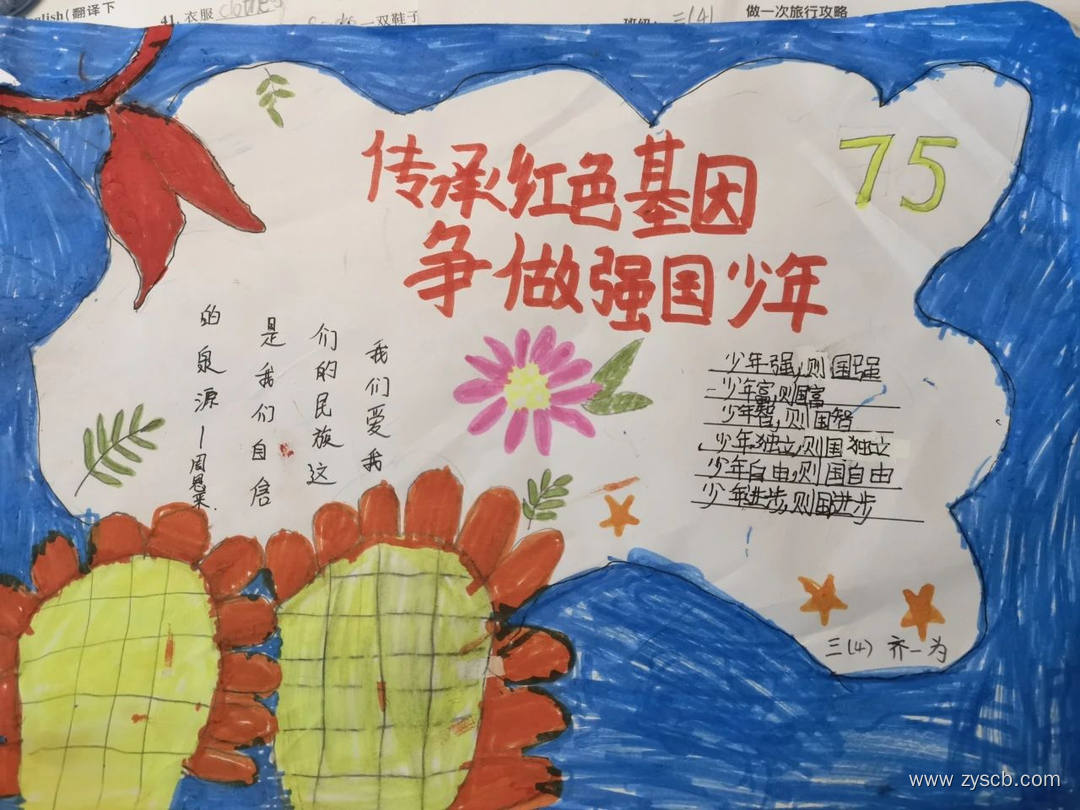 nglish(翻译下
41. 衣服 clothes
一双鞋子
班级: 三(4)
做一次旅行攻略
传承红色基因
争做强国少年
75
我们爱我
们的民族这
是我们自信
的泉源—周恩来.
少年强,则国强
少年富,则国富
少年智,则国智
少年独立,则国独立
少年自由,则国自由
少年进步,则国进步
三(4) 齐一为
www.zyscb.com